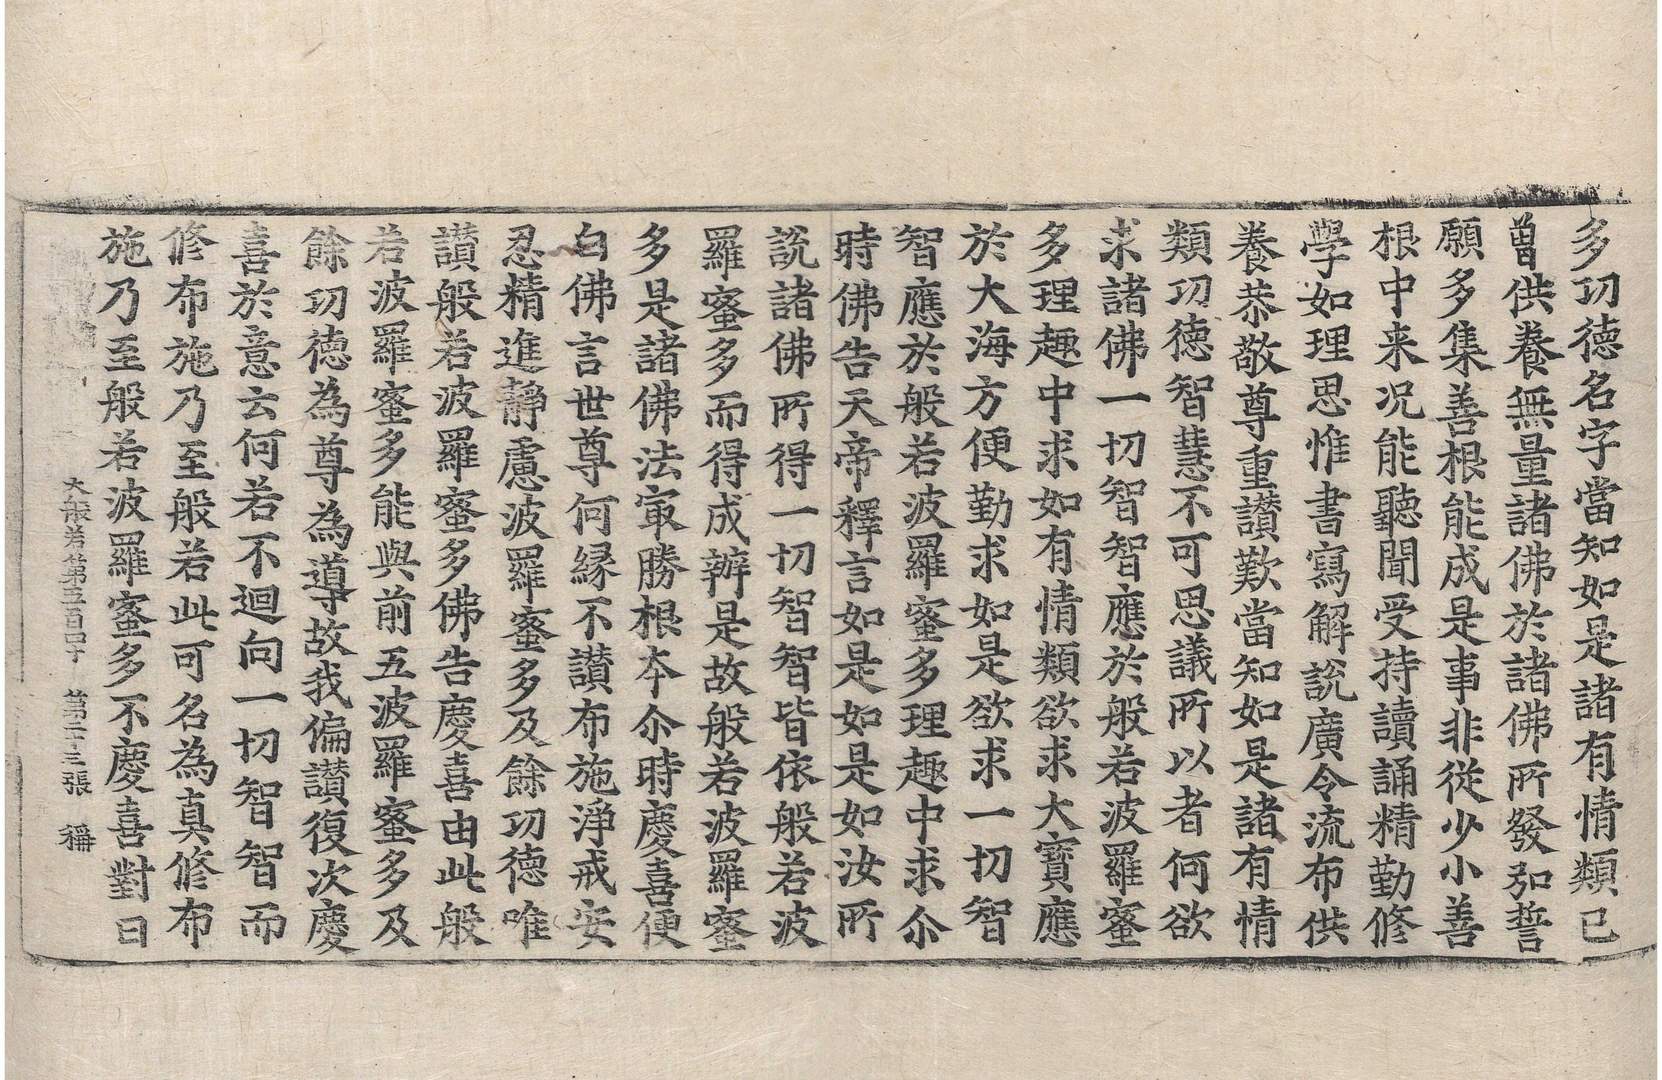 多功德名字當知如是諸有情類已
曽供養無量諸佛於諸佛所發弘誓
願多集善根能成是事非從少小善
根中来况能聽聞受持讀誦精勤修
學如理思惟書寫解說廣令流布供
養恭敬尊重讚歎當知如是諸有情
類功德智慧不可思議所以者何欲
求諸佛一切智智應於般若波羅蜜
多理趣中求如有情類欲求大寶應
於大海方便勤求如是欲求一切智
智應於般若波羅蜜多理趣中求尒
時佛告天帝釋言如是如是如汝所
說諸佛所得一切智智皆依般若波
羅蜜多而得成辦是故般若波羅蜜
多是諸佛法㝡勝根本尒時慶喜便
白佛言世尊何緣不讚布施淨戒安
忍精進靜慮波羅蜜多及餘功德唯
讚般若波羅蜜多佛告慶喜由此般
若波羅蜜多能與前五波羅蜜多及
餘功德為尊為導故我偏讚復次慶
喜於意云何若不迴向一切智智而
修布施乃至般若此可名為真修布
施乃至般若波羅蜜多不慶喜對曰
大般若第五百四 第二十三張 稱